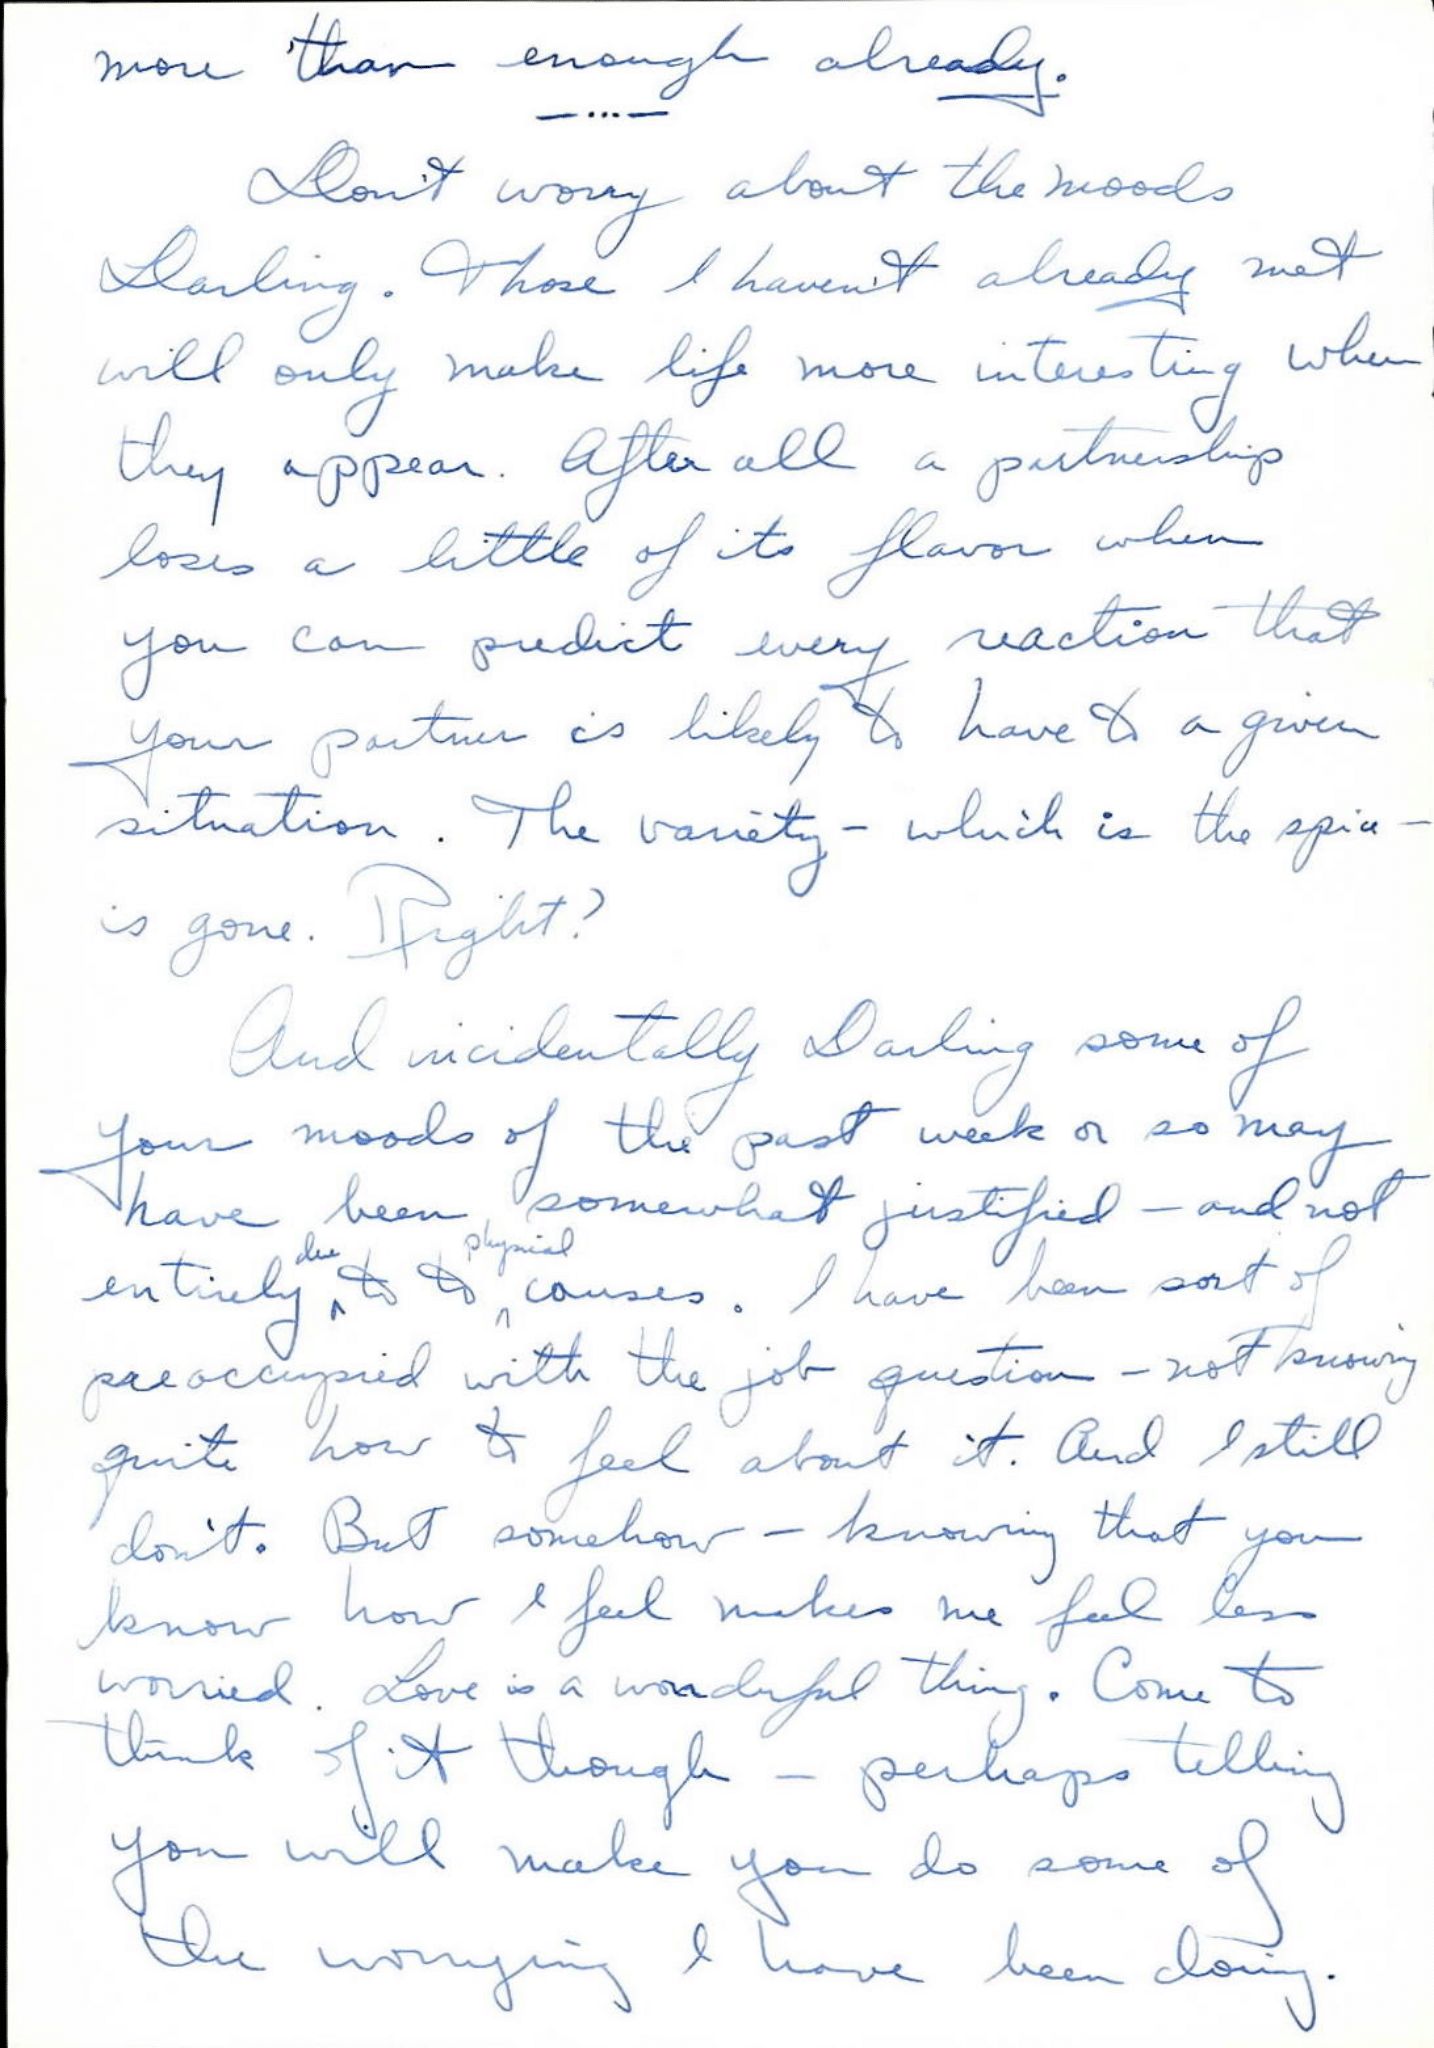 more than enough already.
—...—
Don't worry about the moods
Darling. Those I haven't already met
will only make life more interesting when
they appear. After all a partnership
loses a little of its flavor when
you can predict every reaction that
your partner is likely to have to a given
situation. The variety - which is the spice -
is gone. Right?
And incidentally Darling some of
your moods of the past week or so may
have been somewhat justified - and not
entirely due to to physical causes. I have been sort of
preoccupied with the job question - not knowing
quite how to feel about it. And I still
don't. But somehow - knowing that you
know how I feel makes me feel less
worried. Love is a wonderful thing. Come to
think of it though - perhaps telling
you will make you do some of
the worrying I have been doing.